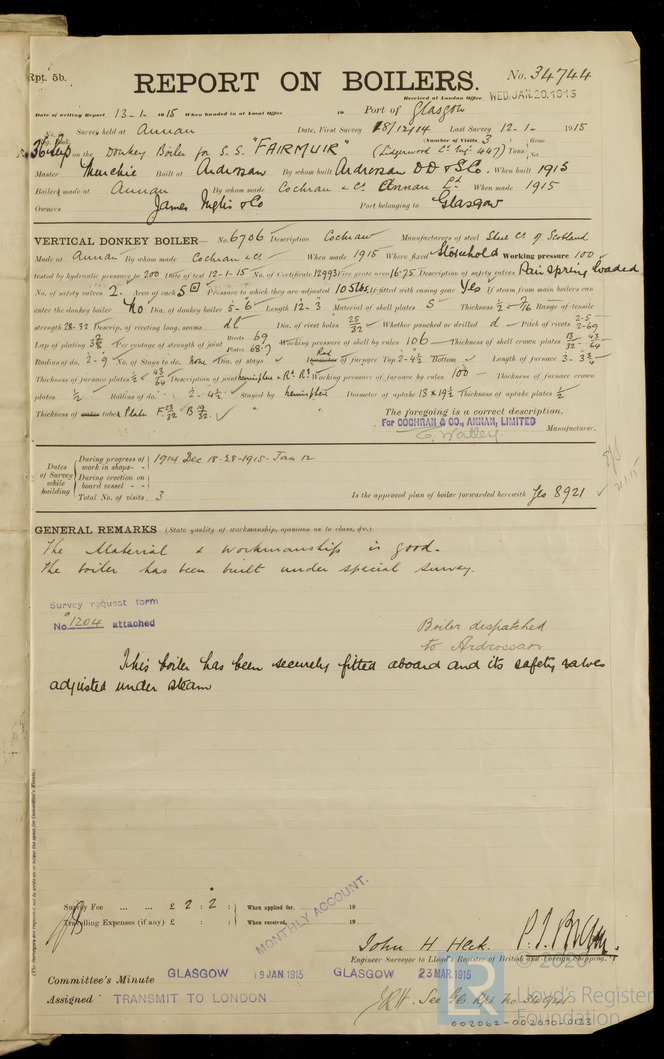 Rpt. 5b.
REPORT ON BOILERS.
No. 34744
Received at London Office WED. JAN. 20. 1915
Date of writing Report 13-1-1915 When handed in at Local Office 19 Port of Glasgow
No. in Survey held at Annan Date, First Survey 18/12/14 Last Survey 12-1-1915
(Number of Visits 3)
on the Donkey Boiler for S.S. "FAIRMUIR" Tons
Master Built at Ardrossan By whom built Ardrossan D.D. & S. Co. When built 1915
Boilers made at Annan By whom made Cochran & Co. Annan Ld. When made 1915
Owners James Inglis & Co Port belonging to Glasgow
VERTICAL DONKEY BOILER— No. 6706 Description Cochran Manufacturers of steel Steel Co of Scotland
Made at Annan By whom made Cochran & Co. When made 1915 Where fixed Stokehold Working pressure 100
tested by hydraulic pressure to 200 Date of test 12-1-15 No. of Certificate 12993 Fire grate area 16.75 Description of safety valves Pair spring loaded
No. of safety valves 2. Area of each 5 Pressure to which they are adjusted 105 lbs. If fitted with easing gear Yes If steam from main boilers can
enter the donkey boiler No Dia. of donkey boiler 5-6 Length 12-3 Material of shell plates S Thickness Range of tensile
strength 28-32 Descrip. of riveting long. seams Dia. of rivet holes 25/32 Whether punched or drilled d Pitch of rivets
Lap of plating Per centage of strength of joint Rivets 69 Plates 68.7 Working pressure of shell by rules 106 Thickness of shell crown plates
Radius of do. 2-9 No. of Stays to do. none Dia. of stays of furnace Top 2-4½ Bottom Length of furnace
Thickness of furnace plates Description of joint Working pressure of furnace by rules 100 Thickness of furnace crown
plates ½ Radius of do. 2-4½ Stayed by hemisphere Diameter of uptake 13 x 19½ Thickness of uptake plates ½
Thickness of water tubes Plate F 23/32 B 19/32
The foregoing is a correct description,
For COCHRAN & CO., ANNAN, LIMITED
Manufacturer.
Dates of Survey while building
During progress of work in shops - - 1914 Dec 18-28-1915-Jan 12
During erection on board vessel - -
Total No. of visits 3
Is the approved plan of boiler forwarded herewith Yes 8921
GENERAL REMARKS (State quality of workmanship, opinions as to class, &c.)
The Material & Workmanship is good.
The boiler has been built under special survey.
Survey request form
No. 1204 attached
Boiler despatched
to Ardrossan
This boiler has been securely fitted aboard and its safety valves
adjusted under steam
Survey Fee ... ... £ 2 : 2 : When applied for, 19
Travelling Expenses (if any) £ : : When received, 19
MONTHLY ACCOUNT.
John H Heck.
Engineer Surveyor to Lloyd's Register of British and Foreign Shipping.
Committee's Minute GLASGOW 19 JAN 1915 GLASGOW 23 MAR. 1915
Assigned TRANSMIT TO LONDON
© 2020
LR
Lloyd's Register
Foundation
002062-002070-0133